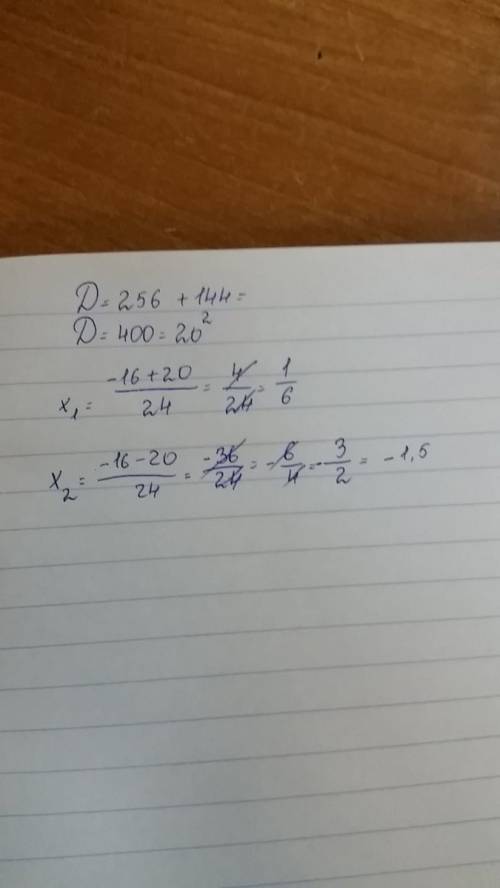 D = 256 + 144 =
D = 400 = 20²
x₁ = (-16 + 20)/24 = 4/24 = 1/6
x₂ = (-16 - 20)/24 = -36/24 = -6/4 = -3/2 = -1,5